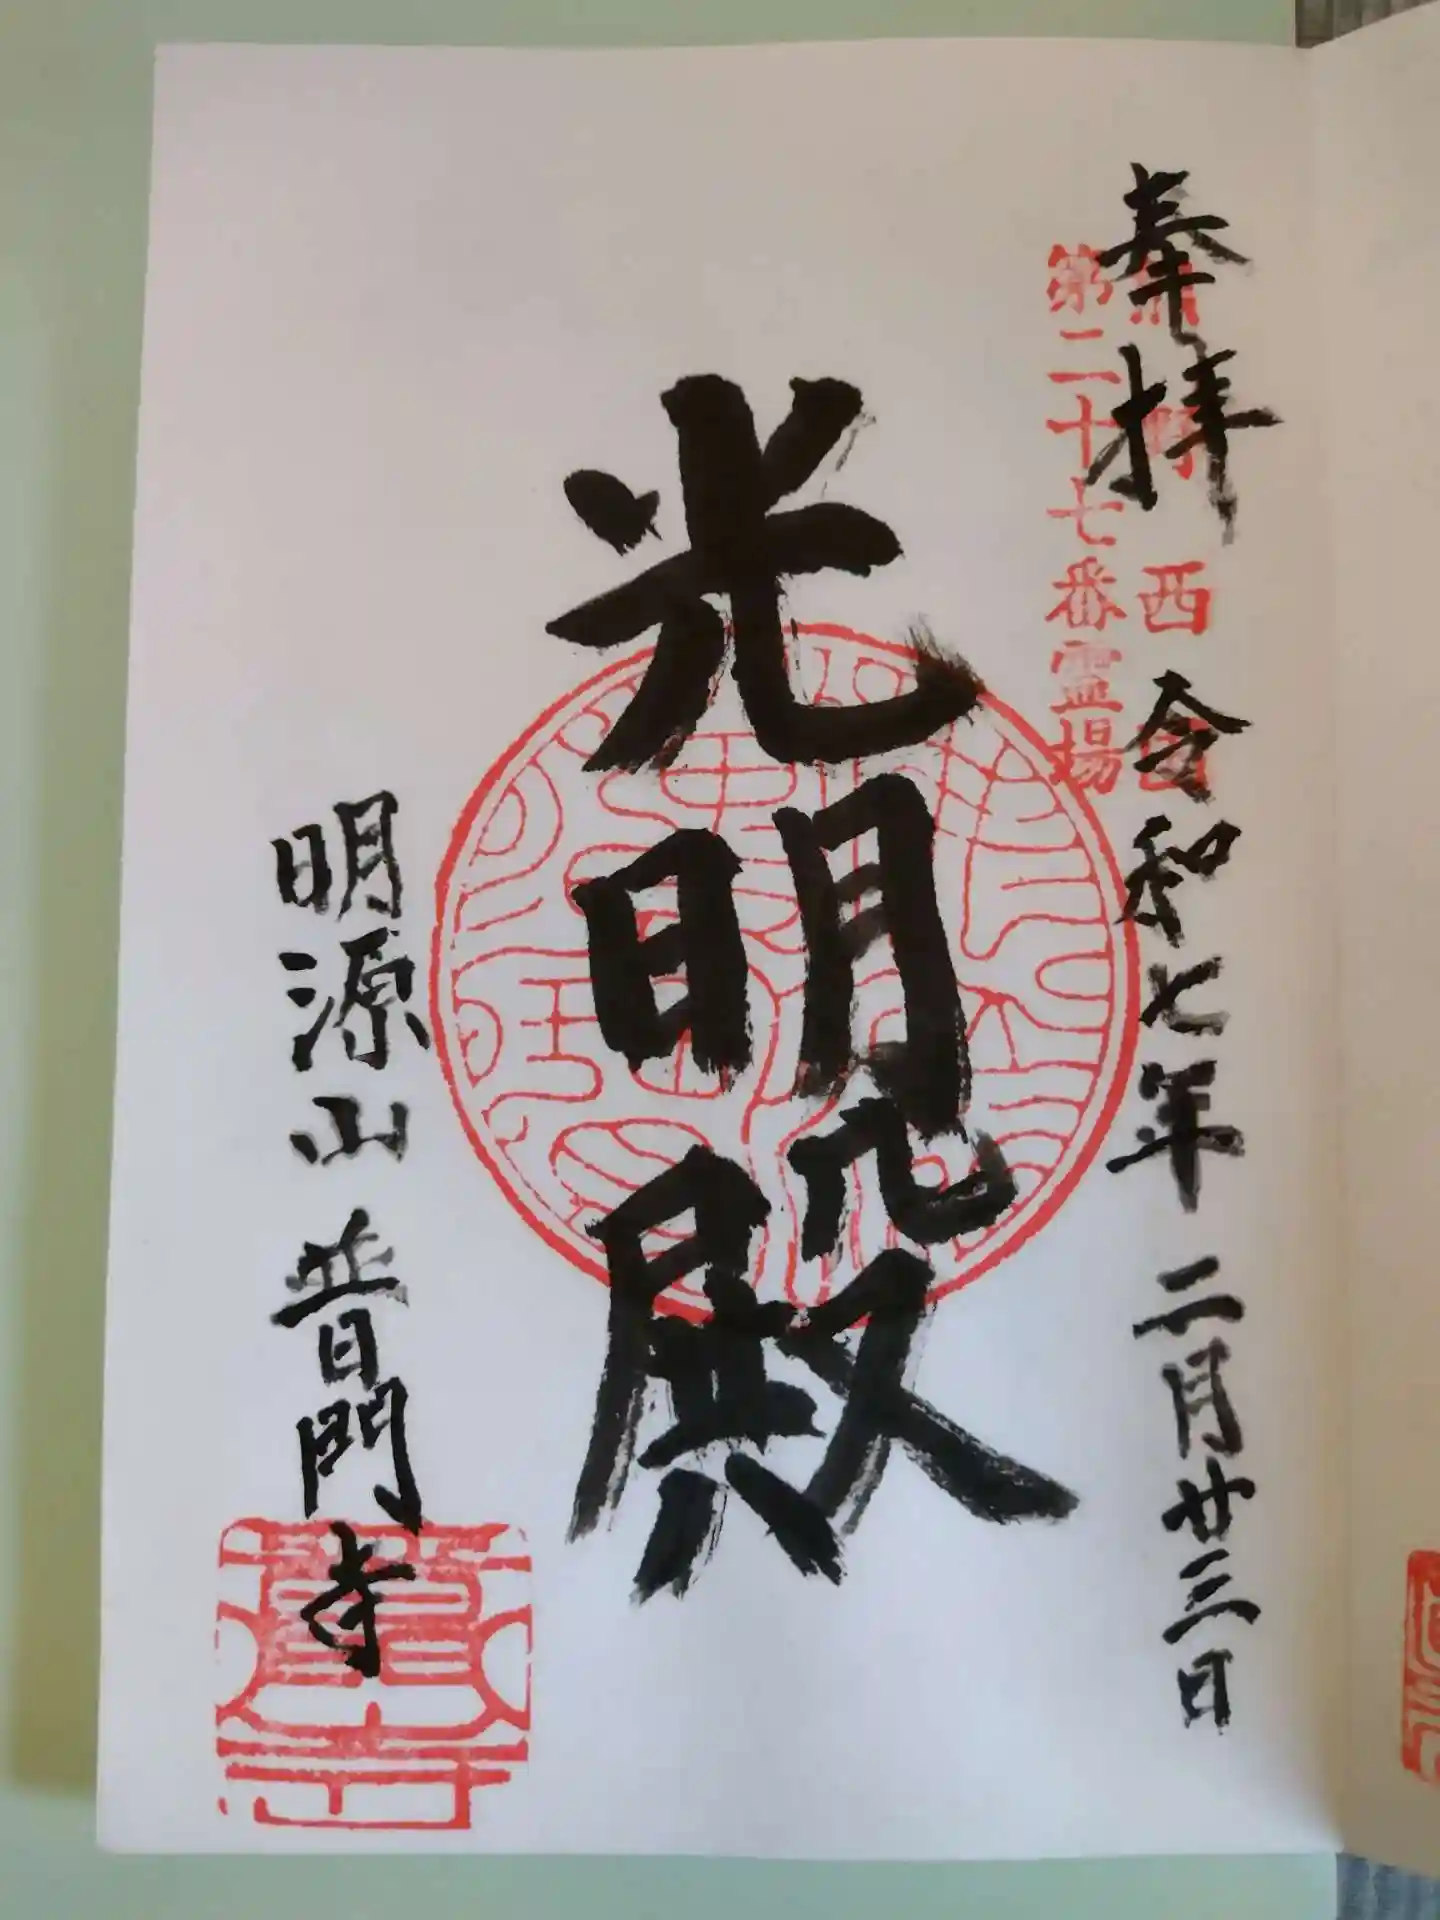 奉拝 令和七年 二月廿三日
野西国
第二十七番霊場
光明殿
明源山 普門寺